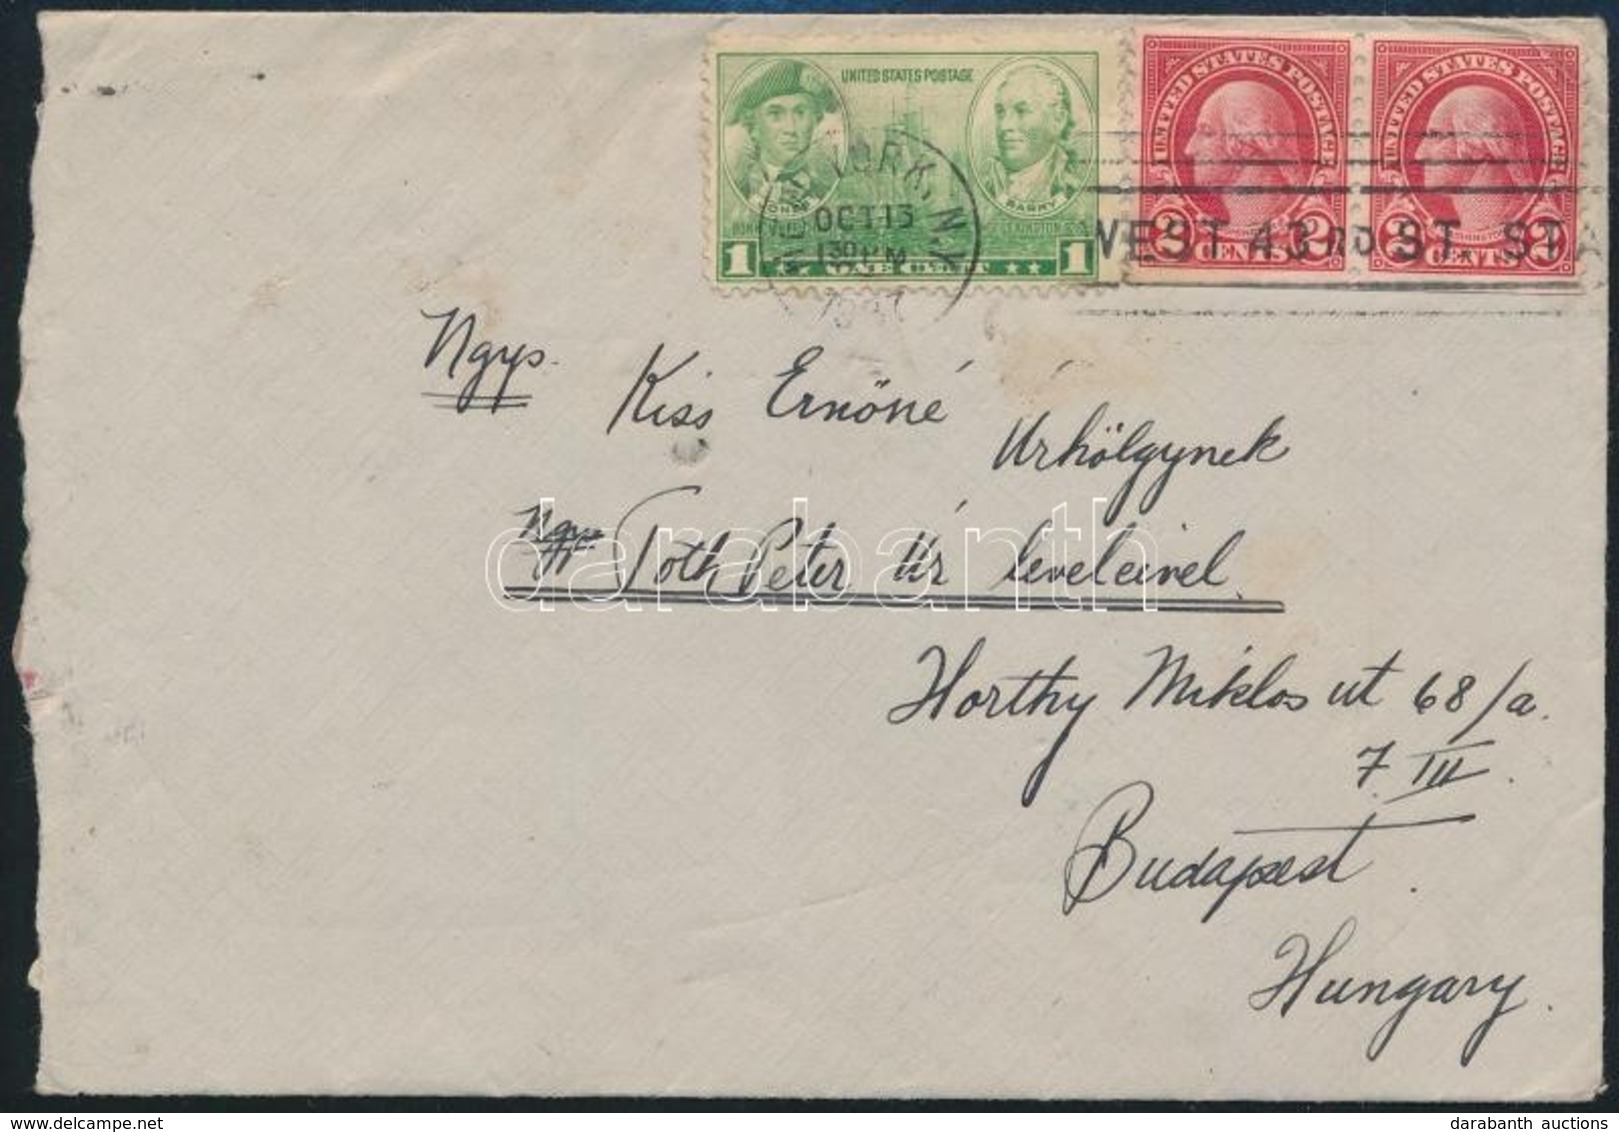 UNITED STATES POSTAGE
JONES
BARRY
1 ONE CENT 1
UNITED STATES POSTAGE
2 CENTS 2
UNITED STATES POSTAGE
2 CENTS 2
NEW YORK, N.Y.
OCT 13
130 PM
1937
WEST 43RD ST. STA
Ngys. Kiss Ernőné
Úrhölgynek
Ngys Toth Péter Úr leveleivel.
Horthy Miklos ut 68/a.
7 III.
Budapest.
Hungary.
darabanth
darabanth auctions